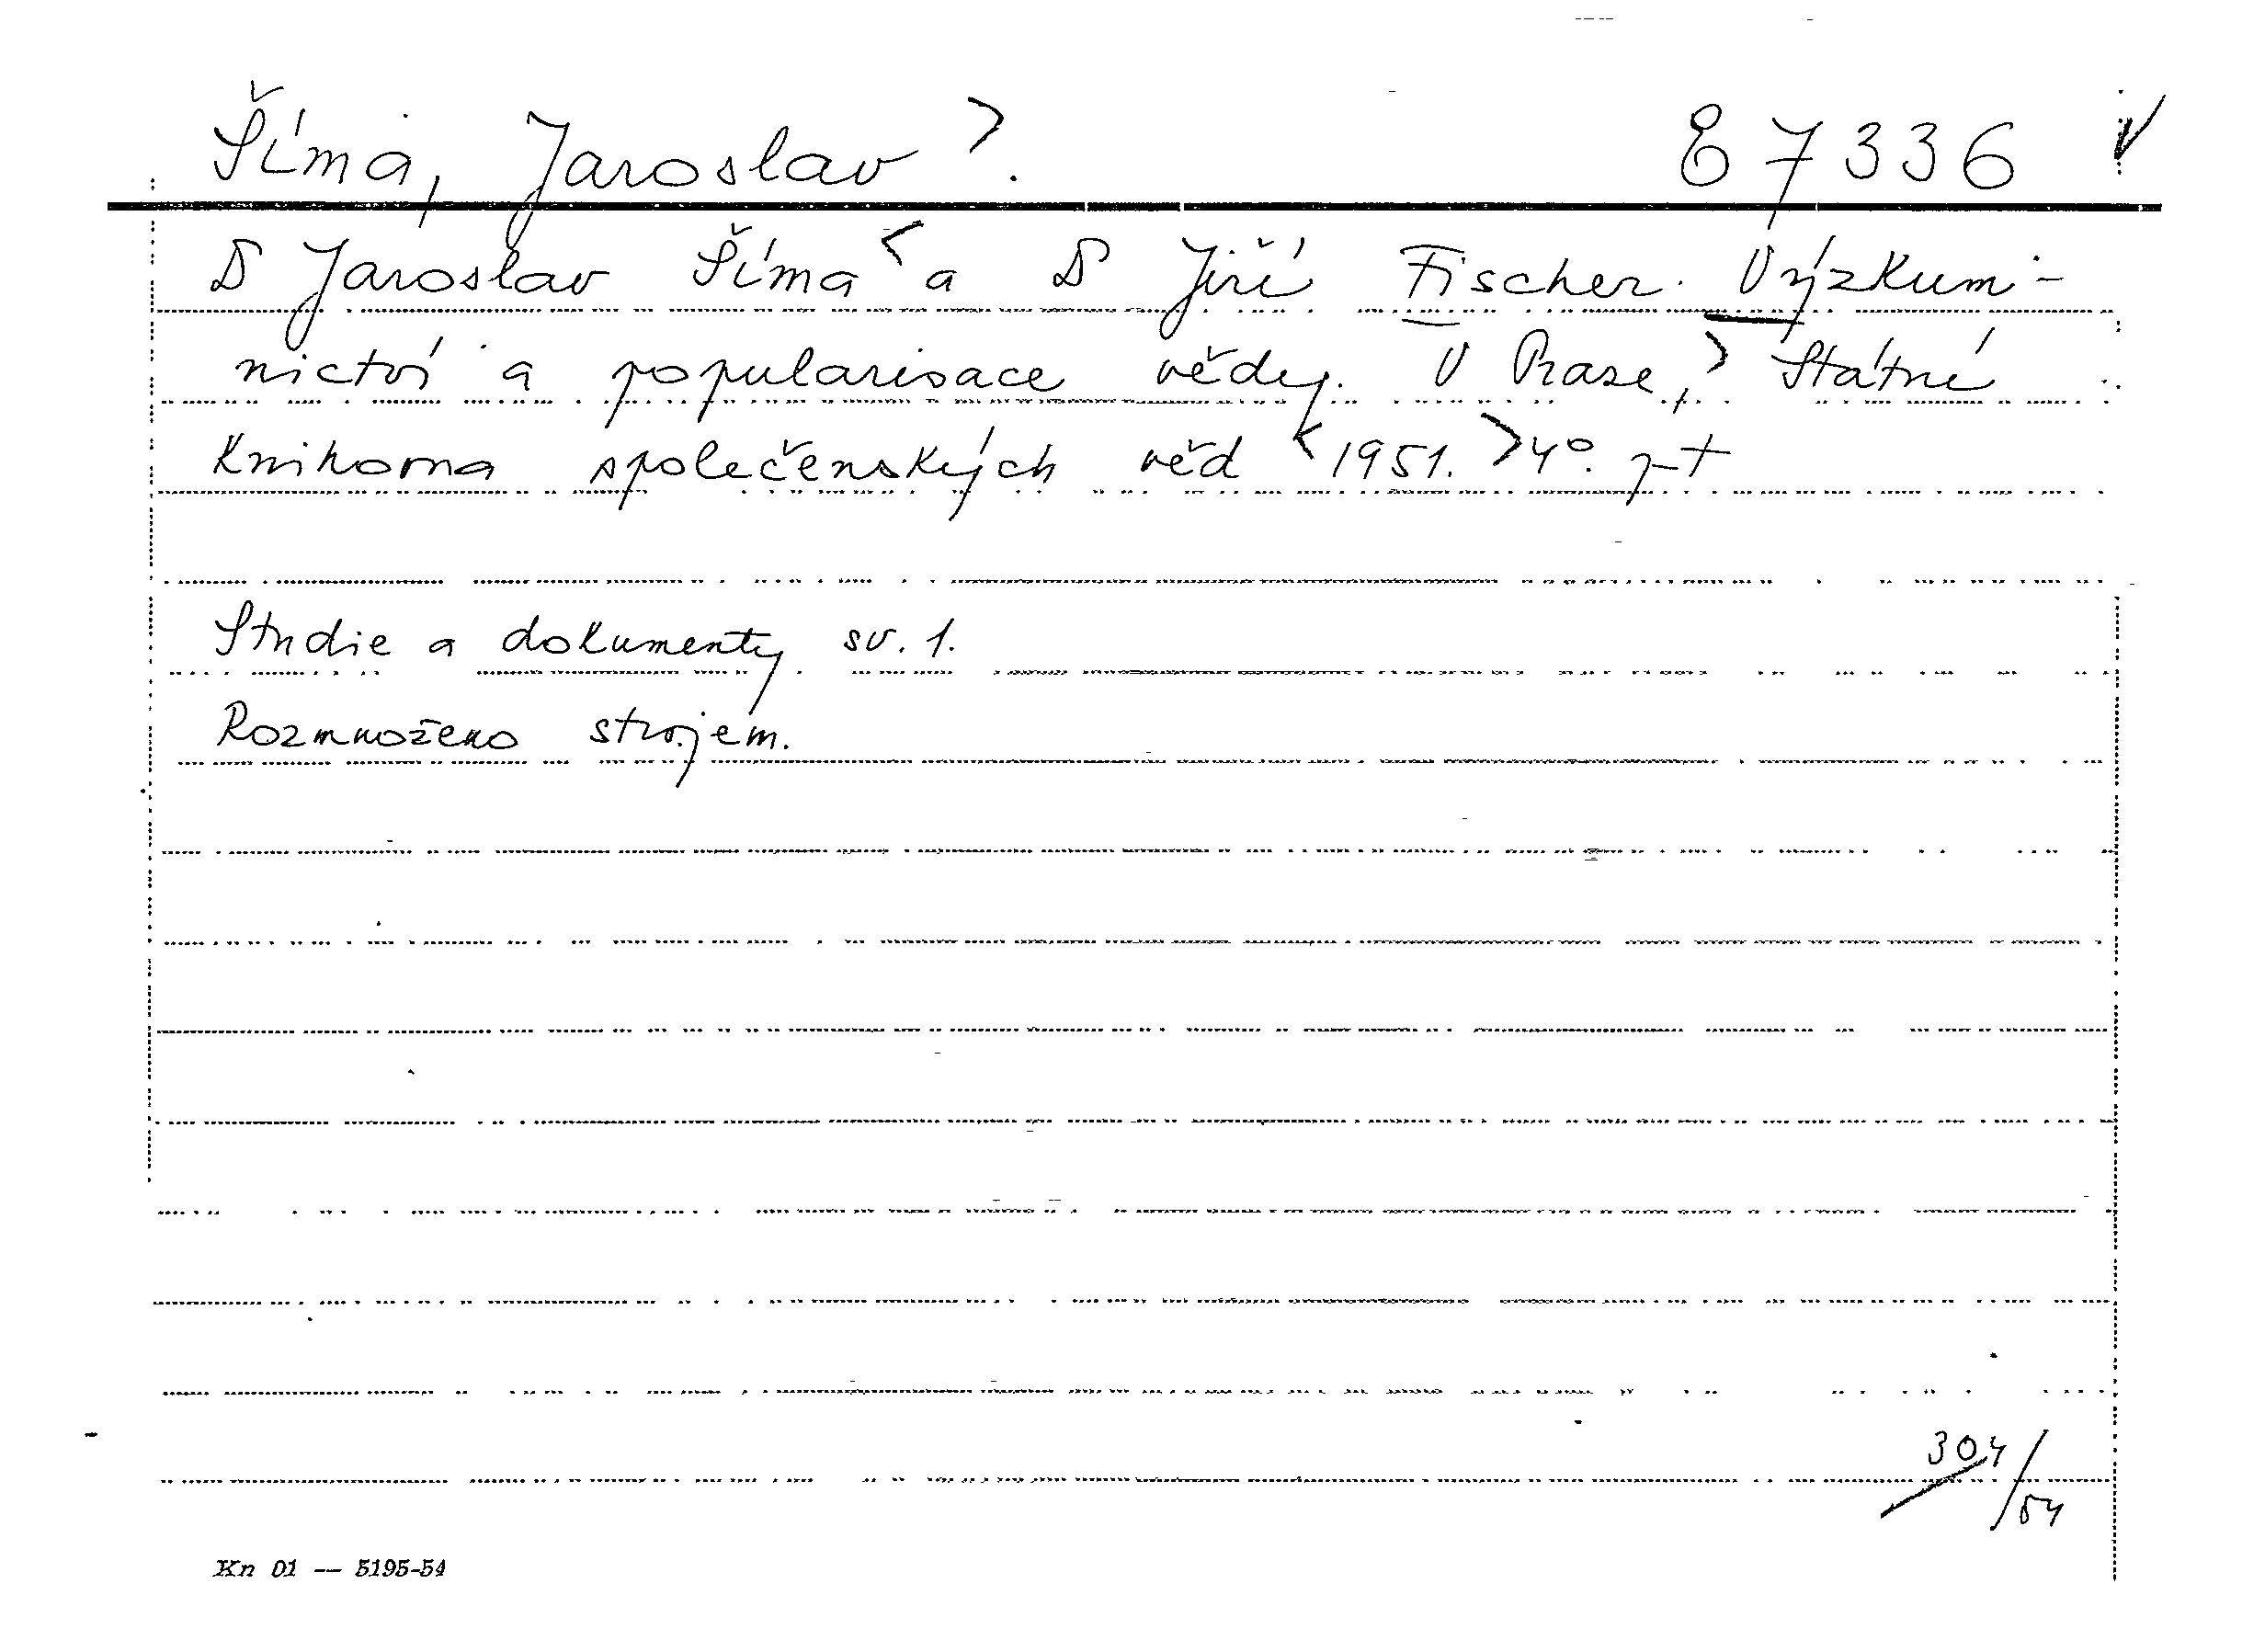 Šíma, Jaroslav >. E7336 V
D Jaroslav Šíma < a D Jiří Fischer. Výzkum-
nictví a popularisace vědy. V Praze, > Státní
Knihovna společenských věd < 1951. > 4°.
Studie a dokumenty sv. 1.
Rozmnoženo strojem.
304/54
Kn 01 — 5195-54